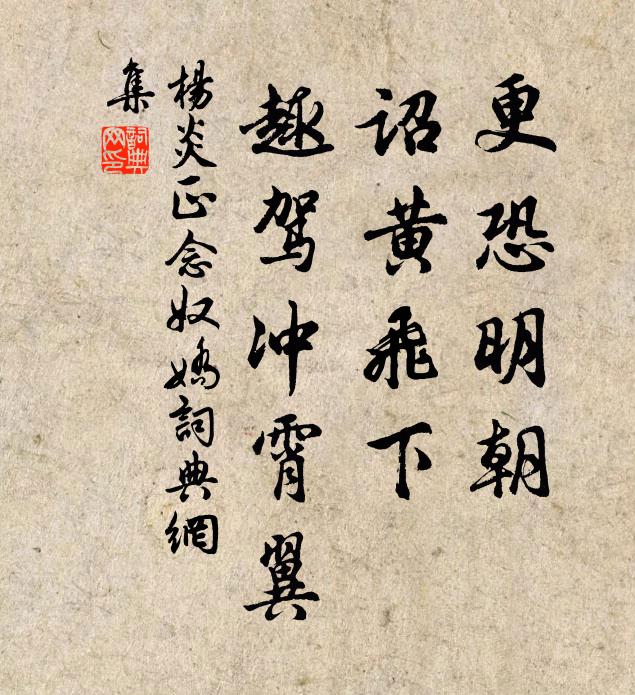 更恐明朝
詔黃飛下
趣駕冲霄翼
楊炎正念奴嬌詞典網
集
詞典
网印